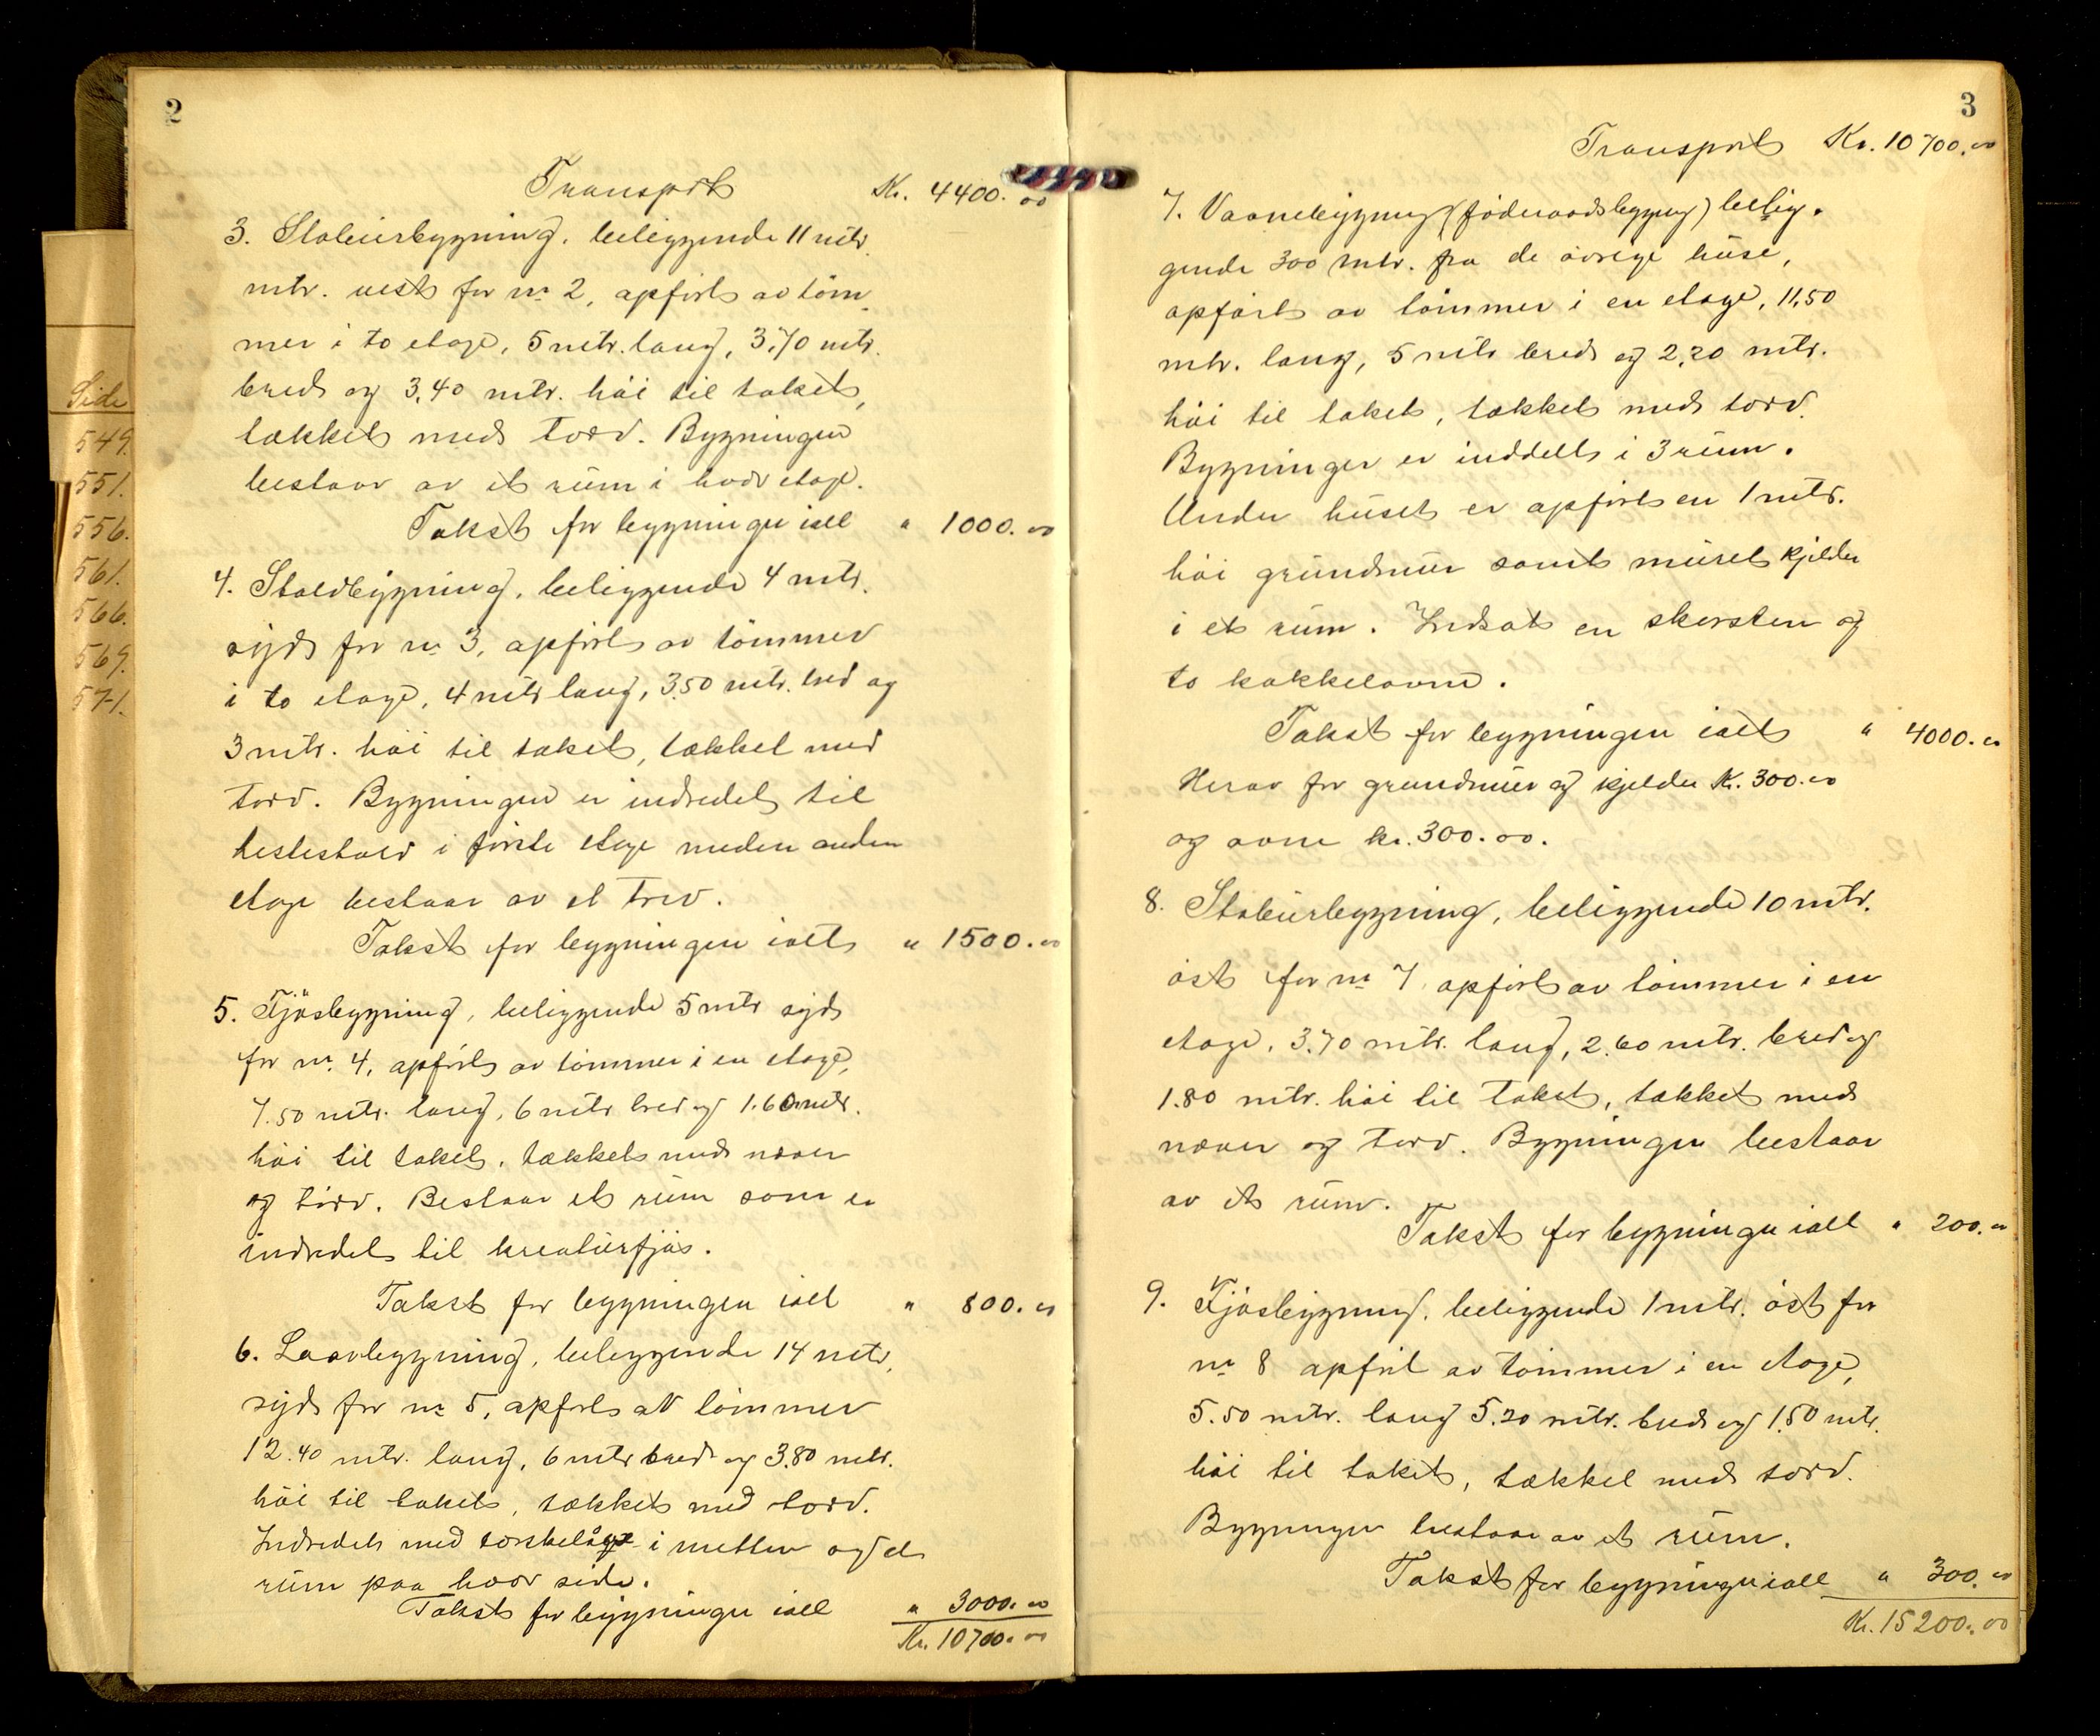 2
Transport Kr. 4400.00
3. Stabursbygning, beliggende 11 mtr.
mtr. vest for nr 2, opført av töm
mer i to etage, 5 mtr. lang, 3,70 mtr.
bred og 3,40 mtr. höi til taket,
tækket med torv. Bygningen
bestaar av et rum i hver etage.
Takst for bygningen ialt " 1000.00
4. Staldbygning, beliggende 4 mtr.
syd for nr 3, opført av tömmer
i to etage, 4 mtr lang, 3.50 mtr. bred og
3 mtr. höi til taket, tækket med
torv. Bygningen er indredet til
hestestald i første etage meden anden
etage bestaar av et trev.
Takst for bygningen ialt " 1500.00
5. Fjösbygning, beliggende 5 mtr syd
for nr. 4, opført av tömmer i en etage,
7.50 mtr. lang, 6 mtr bred og 1.60 mtr.
höi til taket, tækket med næver
og torv. Bestaar et rum som er
indredet til kreaturfjös.
Takst for bygningen ialt " 800.00
6. Laavebygning, beliggende 14 mtr.
syd for nr 5, opført av tömmer
12.40 mtr. lang, 6 mtr bred og 3.80 mtr.
höi til taket, tækket med torv.
Indredet med i mitten og et
rum paa hver side.
Takst for bygningen ialt " 3000.00
Kr. 10700.00
Side
549.
551.
556.
561.
566.
569.
571.
3
Transport Kr. 10700.00
7. Vaanebygning (föderaadsbygning) belig-
gende 300 mtr. fra de övrige huse,
opfört av tömmer i en etage, 11,50
mtr. lang, 5 mtr bred og 2,20 mtr.
höi til taket, tækket med torv.
Bygningen er inddelt i 3 rum.
Under huset er opført en 1 mtr.
höi grundmur samt muret kjelder
i et rum. Indsat en skorsten og
to kakkelovne.
Takst for bygningen ialt " 4000.00
Herav for grundmur og kjelder Kr. 300.00
og ovne kr. 300.00.
8. Stabursbygning, beliggende 10 mtr.
öst for nr 7 opført av tömmer i en
etage, 3.70 mtr. lang, 2.60 mtr. bred og
1.80 mtr. höi til taket, tækket med
næver og torv. Bygningen bestaar
av et rum.
Takst for bygningen ialt " 200.00
9. Fjösbygning, beliggende 1 mtr. öst for
nr 8 opført av tömmer i en etage,
5.50 mtr. lang 5.20 mtr. bred og 1.50 mtr.
höi til taket, tækket med torv.
Bygningen bestaar av et rum.
Takst for bygningen ialt " 300.00
Kr. 15200.00